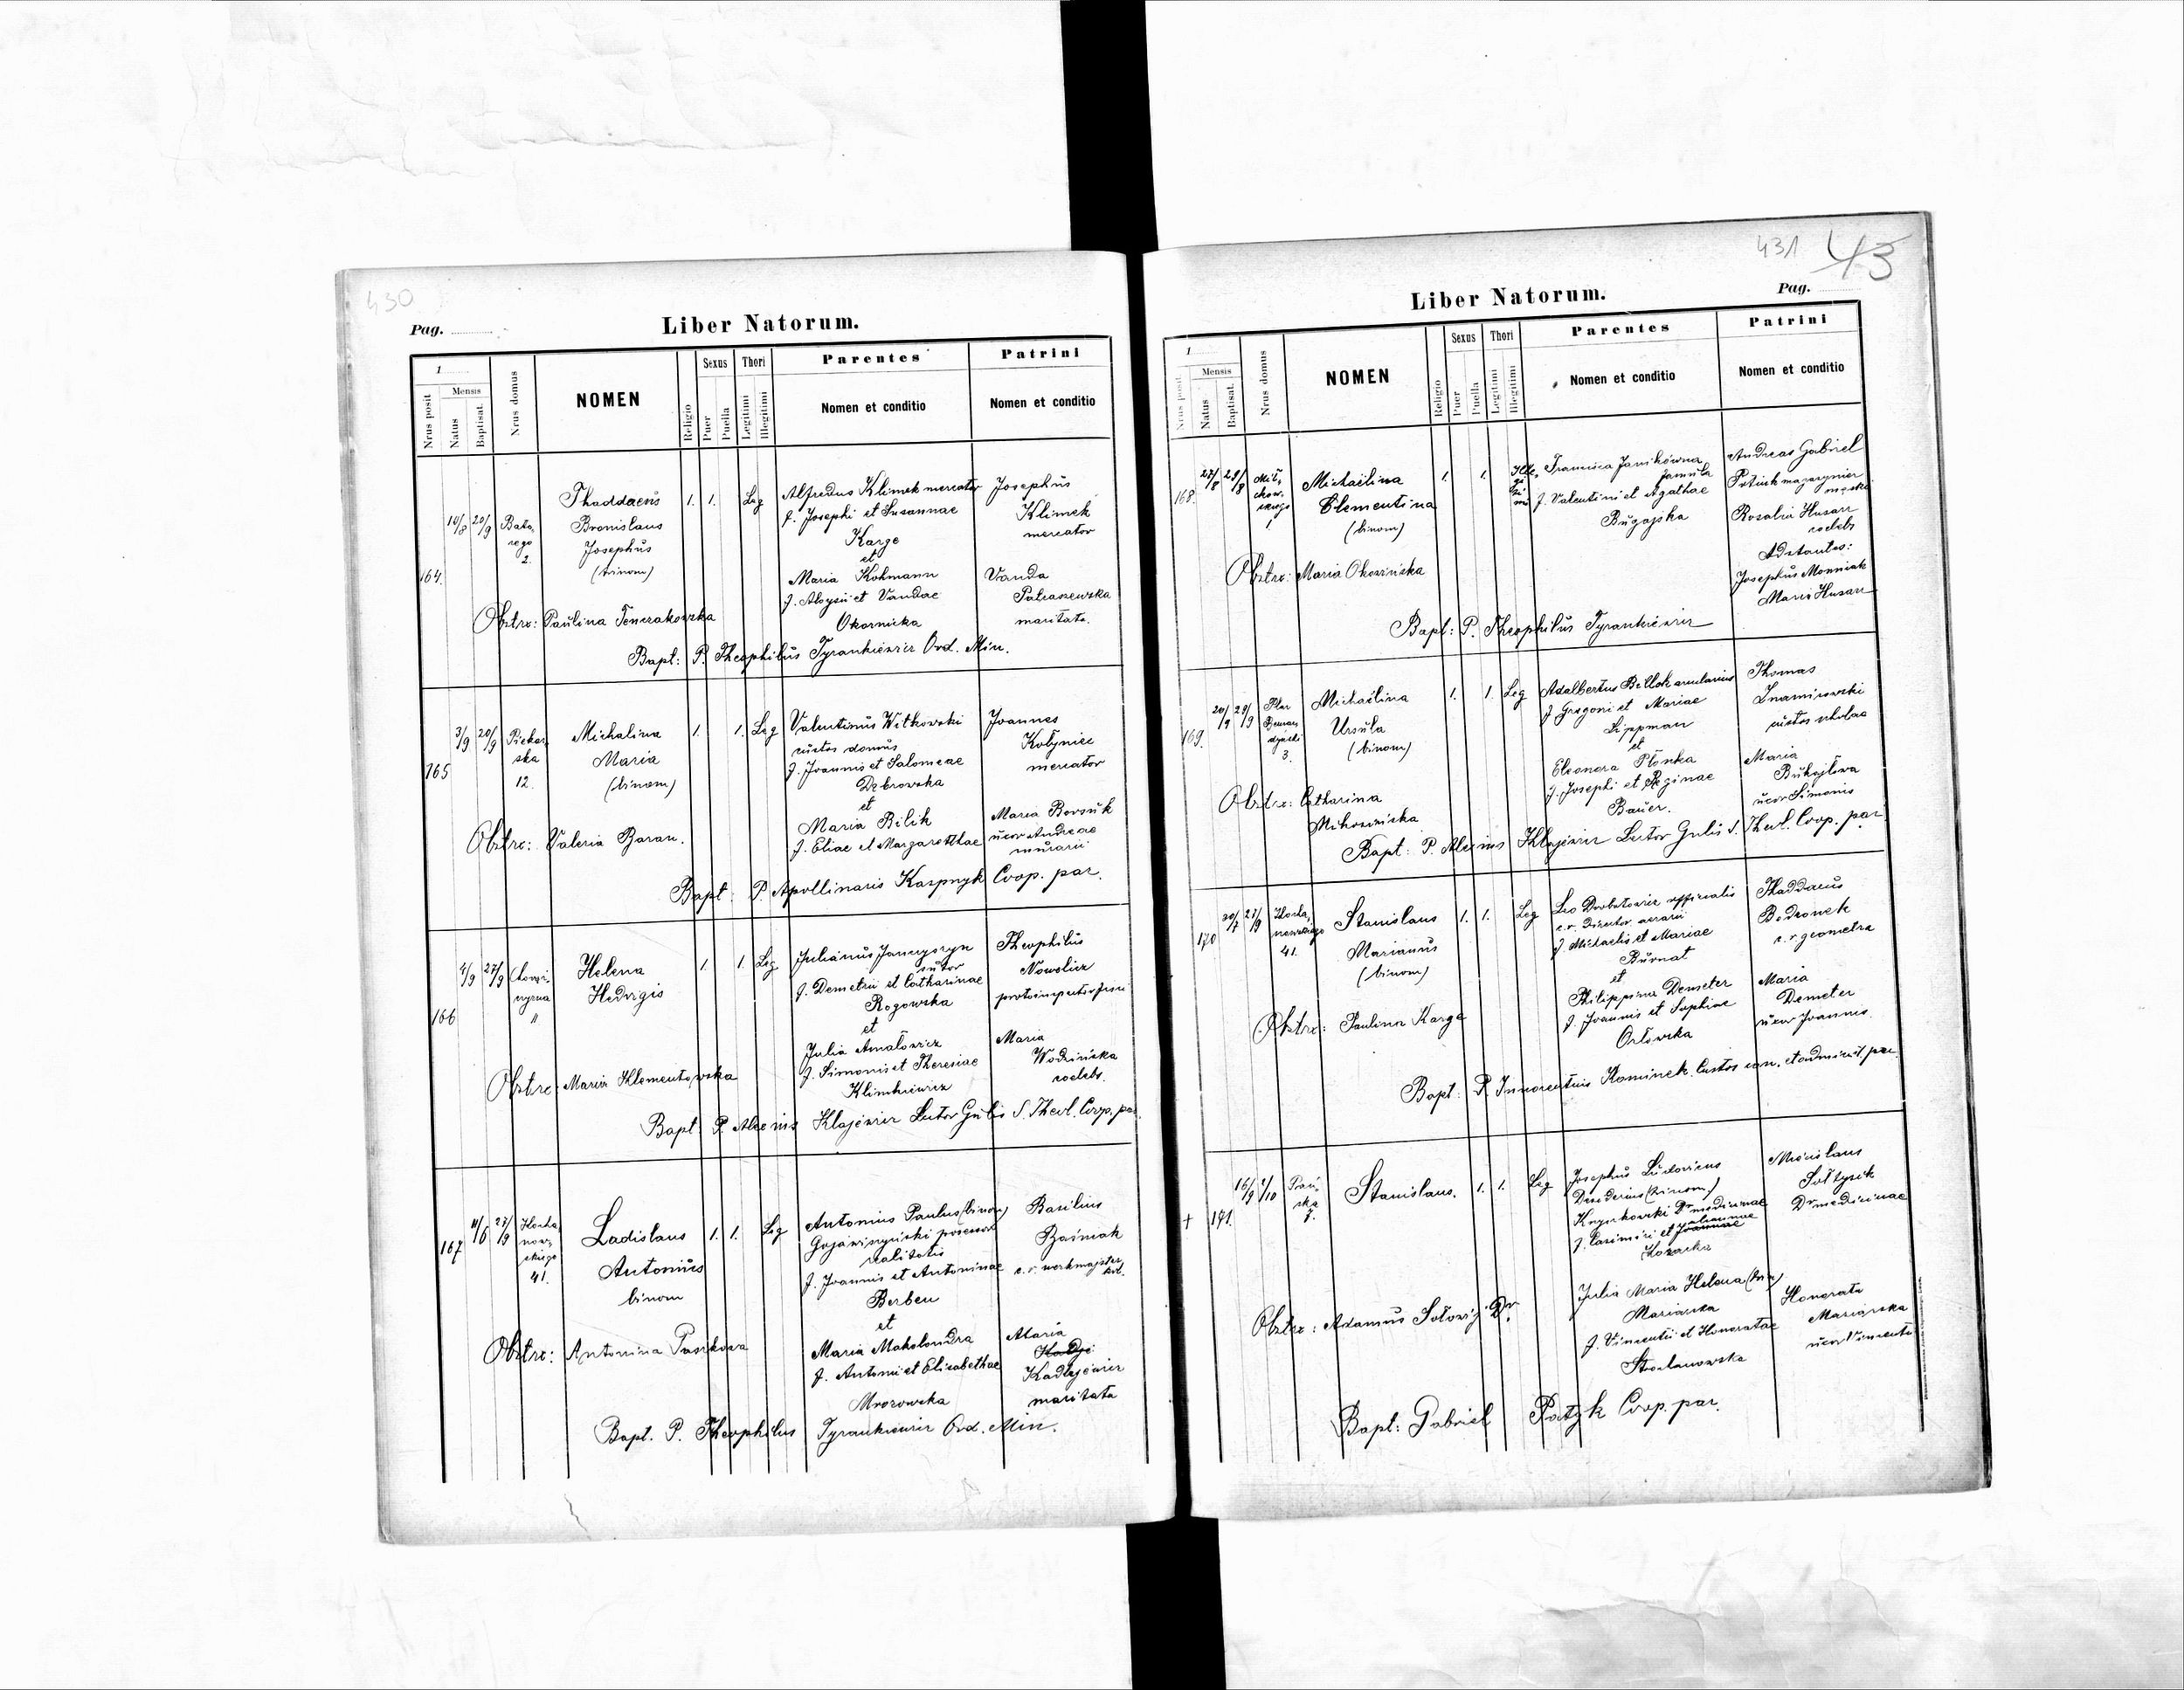 430
Pag.
Liber Natorum.
1
Mensis
Nrus posit
Natus
Baptisat.
Nrus domus
NOMEN
Religio
Sexus
Puer
Puella
Thori
Legitimi
Illegitimi
Parentes
Nomen et conditio
Patrini
Nomen et conditio
164.
10/8 20/9
Bato,
rego
2.
Thaddaeus
Bronislaus
Josephus
(trinom)
1. 1. Leg
Alfredus Klimek mercator
f. Josephi et Susannae
Karge
et
Maria Kohmann
f. Aloysii et Vandae
Okornicka
Josephus
Klimek
mercator
Vanda
maritata.
Obstrx: Paulina Tenczakowska
Bapt: P. Theophilus Tyrankiewicz Ord. Min.
165
3/9 20/9
Piekar,
ska
12.
Michalina
Maria
(binom)
1. 1. Leg
Valentinus Witkowski
custos domus
f. Joannis et Salomeae
Dobrowska
et
Maria Bilik
f. Eliae et Margarethae
Joannes
Kobyniec
mercator
Maria Borsuk
uxor Andreae
murarii
Obstrx: Valeria Baran.
Bapt: P. Apollinaris Karpnyk Coop. par.
166
4/9 27/9
Helena
Hedvigis
1. 1. Leg
Julianus Janczyszyn
sutor
f. Demetrii et Catharinae
Rogowska
et
Julia
f. Simonis et Theresiae
Klimkiewicz
Theophilus
Nowolicz
Maria
Wodzińska
coelebs.
Obstrx: Maria Klementowska
Bapt: P. Klajewicz Lector S. Theol. Coop. par.
167
11/6 27/9
Kocha
now,
skiego
41.
Ladislaus
Antonius
binom
1. 1. Leg
Antonius Paulus (binom)
possessor
realitatis
f. Joannis et Antoninae
Berbeu
et
Maria Makolondra
f. Antonii et Elisabethae
Mrozowska
Basilius
Baśniak
c. r. werkmajster
Maria
Kadłyjewicz
maritata
Obstrx: Antonina Pasikowa
Bapt. P. Theophilus Tyrankiewicz Ord. Min.
431
43
Liber Natorum.
Pag.
1
Mensis
Nrus posit
Natus
Baptisat.
Nrus domus
NOMEN
Religio
Sexus
Puer
Puella
Thori
Legitimi
Illegitimi
Parentes
Nomen et conditio
Patrini
Nomen et conditio
168.
27/8 29/8
Mił,
kow,
skiego
1.
Michaëlina
Clementina
(binom)
1. 1.
Ille,
gi
ti
mi
Francisca Janikówna
famula
f. Valentini et Agathae
Bugajska
Andreas Gabriel
Rosalia Husarz
coelebs
Adstantes:
Josephus Monniak
Maria Husarz
Obstrx: Maria Okosińska
Bapt: P. Theophilus Tyrankiewicz
169.
20/9 29/9
Plac
Bernar
dyński
3.
Michaëlina
Ursula
(binom)
1. 1. Leg
f. Gregorii et Mariae
Lippman
et
Eleonora Płonka
f. Josephi et Reginae
Bauer.
Thomas
Znamirowski
custos scholae
Maria
uxor Simonis
Obstrx: Catharina
Bapt: P. Klajewicz Lector S. Theol. Coop. par.
170
30/7 27/9
Kocha,
nowskiego
41.
Stanislaus
Marianus
(binom)
1. 1. Leg
Leo Drobotowicz officialis
f. Michaelis et Mariae
Burnat
et
Philippina Demeter
f. Joannis et Sophiae
Orłowska
Thaddaeus
Bedronek
c. r. geometra
Maria
Demeter
uxor Joannis.
Obstrx: Paulina Karge
Bapt: P. Innocentius Kominek Custos con. et administ. par.
+ 171.
16/9 1/10
7.
Stanislaus.
1. 1. Leg
Josephus Ludovicus
Desiderius (trinom)
Dr medicinae
f. Casimiri et
Kozacka
Julia Maria Helena (trin)
Mariarska
f. Vincentii et Honoratae
Stroclanowska
Miecislaus
Sołtysik
Dr medicinae
Honorata
Mariarska
uxor Vincentii
Obstrx: Adamus Sołowij Dr.
Bapt: Gabriel Patyk Coop. par.